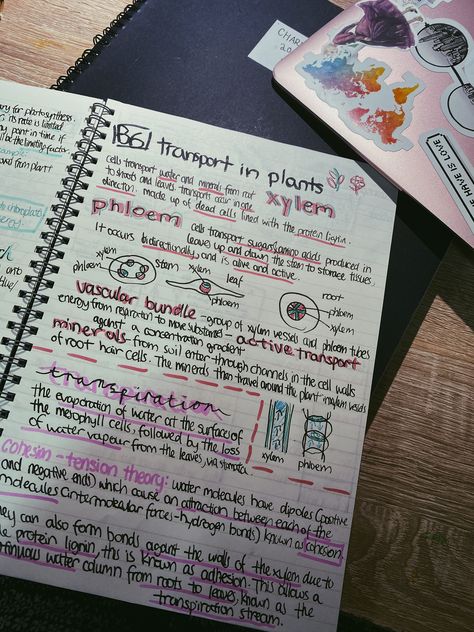 CHAR
20
HAVE IS LOVE
for photosynthesis
its rate is limited
point in time if
ll be the limiting factor.
ved from plant
B6 transport in plants
cells transport water and minerals from root
to shoots and leaves. transports occur in one
direction. made up of dead cells lined with the protein lignin.
xylem
phloem
cells transport sugars/amino acids produced in
leaves up and down the stem to storage tissues.
It occurs bidirectionally and is alive and active.
xylem
phloem
stem
xylem
leaf
phloem
root
phloem
xylem
vascular bundle - group of xylem vessels and phloem tubes
energy from respiration to move substances - active transport
against a concentration gradient
minerals - from soil enter through channels in the cell walls
of root hair cells. The minerals then travel around the plant in xylem vessels
transpiration
transpiration
the evaporation of water at the surfaces of
the mesophyll cells, followed by the loss
of water vapour from the leaves, via stomata.
xylem
phloem
cohesion - tension theory: water molecules have dipoles (positive
and negative ends) which cause an attraction between each of the
molecules (intermolecular forces - hydrogen bonds) known as cohesion.
hey can also form bonds against the walls of the xylem due to
protein lignin, this is known as adhesion. This allows a
tinuous water column from roots to leaves, known as the
transpiration stream.